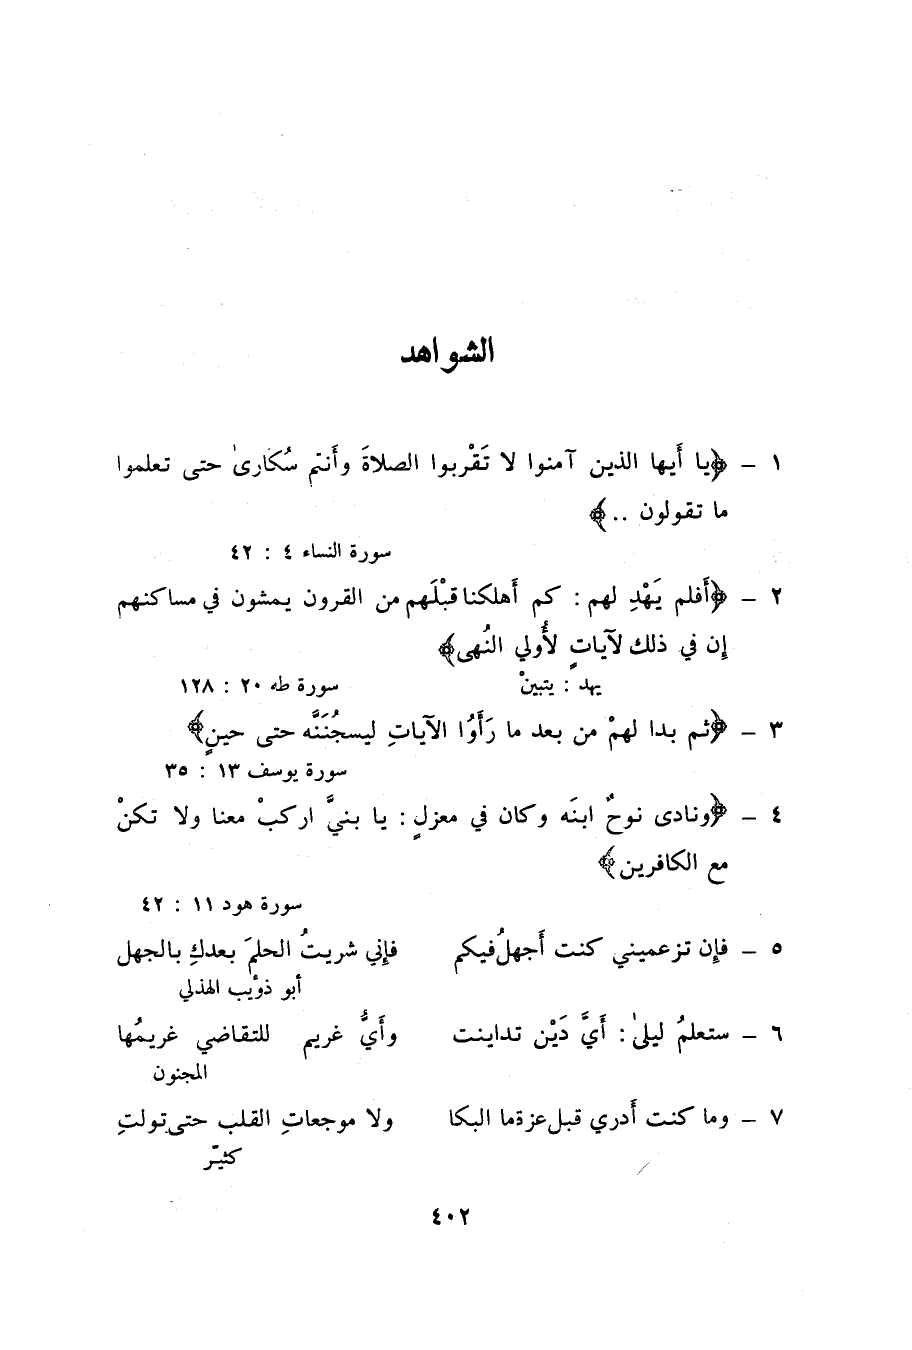 الشواهد
١ – ﴿يا أَيها الذين آمنوا لا تَقْربوا الصلاةَ وأَنتم سُكارىٰ حتى تعلموا
ما تقولون ..﴾
سورة النساء ٤ : ٤٢
٢ – ﴿أَفلم يَهْدِ لهم : كم أَهلكنا قبْلَهم من القرون يمشون في مساكنهم
إن في ذلك لآياتٍ لأُولي النُهى﴾
يهد : يتبينْ سورة طه ٢٠ : ١٢٨
٣ – ﴿ثم بدا لهمْ من بعد ما رَأَوُا الآياتِ ليسجُنَنَّه حتى حينٍ﴾
سورة يوسف ١٣ : ٣٥
٤ – ﴿ونادى نوحٌ ابنَه وكان في معزلٍ : يا بنيَّ اركبْ معنا ولا تكنْ
مع الكافرين﴾
سورة هود ١١ : ٤٢
٥ – فإن تزعميني كنت أَجهلُ فيكم فإني شريتُ الحلمَ بعدكِ بالجهل
أبو ذؤيب الهذلي
٦ – ستعلمُ ليلىٰ : أَيَّ دَيْن تداينت وأَيُّ غريم للتقاضي غريمُها
المجنون
٧ – وما كنت أَدري قبل عزة ما البكا ولا موجعاتِ القلب حتى تولتِ
كثيّر
٤٠٢